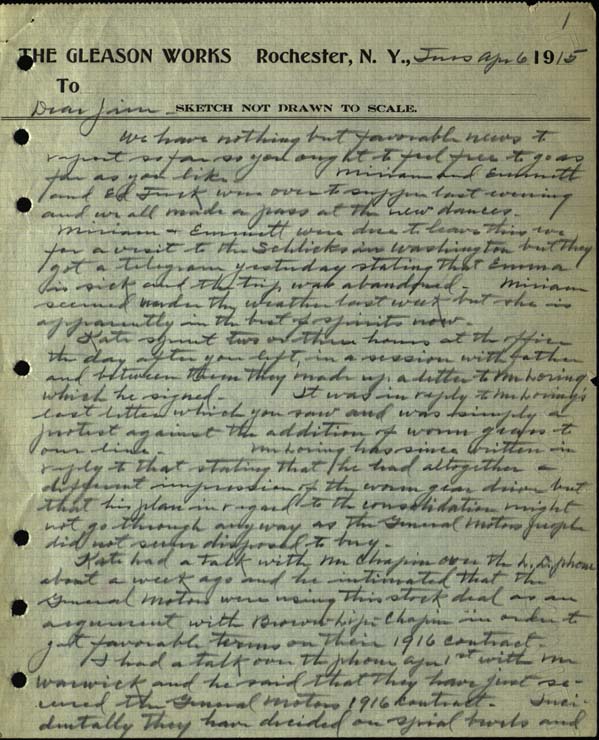 1
THE GLEASON WORKS Rochester, N. Y., Tues Apr 6 1915
To
Dear Jim SKETCH NOT DRAWN TO SCALE.
We have nothing but favorable news to
report so far so you ought to feel free to go as
far as you like. Miriam and Emmett
and Ed were over to supper last evening
and we all made a pass at the new dances.
Miriam + Emmett were due to leave this
for a visit to the Schlicks in Washington but they
got a telegram yesterday stating that Emma
is sick and the trip was abandoned. Miriam
seemed under the weather last week but she is
apparently in the best of spirits now.
Kate spent two or three hours at the office
the day after you left, in a session with father
and between them they made up a letter to Mr Loring
which he signed. It was in reply to Mr Loring's
last letter which you saw and was simply a
protest against the addition of worm gears to
our line. Mr Loring has since written in
reply to that stating that he had altogether a
different impression of the worm gear drive but
that his plan in regard to the consolidation might
not go through anyway as the General Motors people
did not seem disposed to buy.
Kate had a talk with Mr Chapin over the L. D. phone
about a week ago and he intimated that the
General Motors were using this stock deal as an
argument with Brown Lipe Chapin in order to
get favorable terms on their 1916 contract.
I had a talk over the phone Apr 1st with Mr
Warwick and he said that they have just se-
cured the General Motors 1916 contract. Inci-
dentally they have decided on spiral bevels and